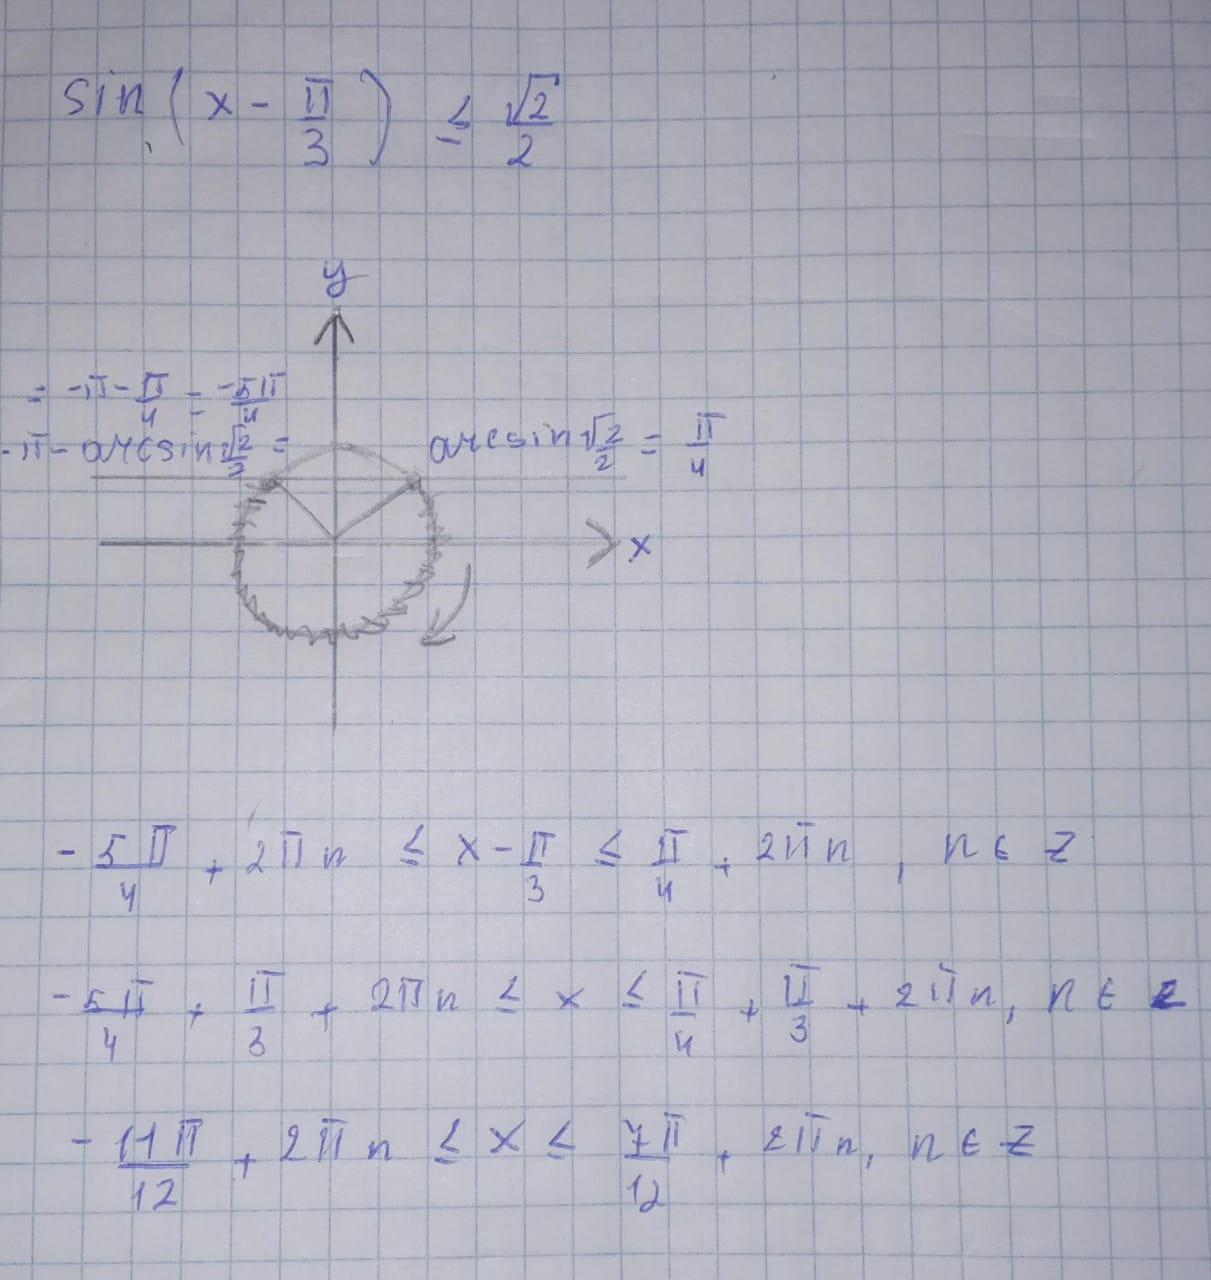 sin (x - π/3) ≤ √2/2
y
= -π - π/4 = -5π/4
-π - arcsin √2/2 =
arcsin √2/2 = π/4
x
-5π/4 + 2πn ≤ x - π/3 ≤ π/4 + 2πn, n ∈ Z
-5π/4 + π/3 + 2πn ≤ x ≤ π/4 + π/3 + 2πn, n ∈ Z
-11π/12 + 2πn ≤ x ≤ 7π/12 + 2πn, n ∈ Z